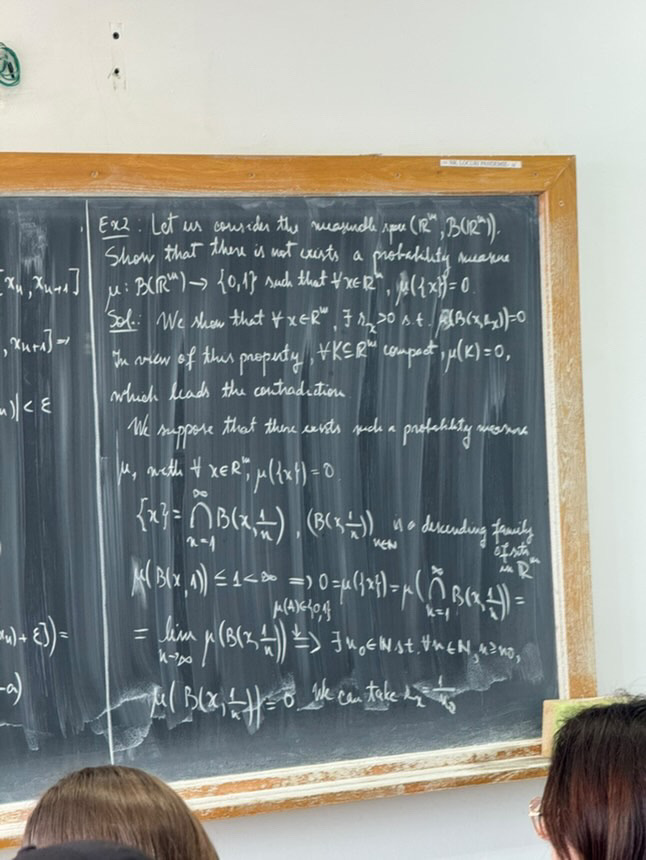 x_n, x_{n+1}]
, x_{n+1}] =>
)| < ε
) + ε]) =
-a)
Ex2: Let us consider the measurable space (ℝ^m, B(ℝ^m)).
Show that there is not exists a probability measure
μ: B(ℝ^m) → {0,1} such that ∀x∈ℝ^m, μ({x}) = 0.
Sol.: We show that ∀ x∈ℝ^m, ∃ r_x>0 s.t. μ(B(x,r_x))=0
In view of this property, ∀K⊆ℝ^m compact, μ(K) = 0,
which leads the contradiction.
We suppose that there exists such a probability measure
μ, with ∀ x∈ℝ^m, μ({x}) = 0.
{x} = ⋂_{n=1}^{∞} B(x, 1/n), (B(x, 1/n))_{n∈ℕ} is a descending family
of sets
in ℝ^m
μ(B(x,1)) ≤ 1 < ∞ => 0 = μ({x}) = μ(⋂_{n=1}^{∞} B(x, 1/n)) =
μ(A)∈{0,1}
= lim_{n→∞} μ(B(x, 1/n)) => ∃ n_0∈ℕ s.t. ∀n∈ℕ, n≥n_0,
μ(B(x, 1/n)) = 0. We can take r_x = 1/n_0